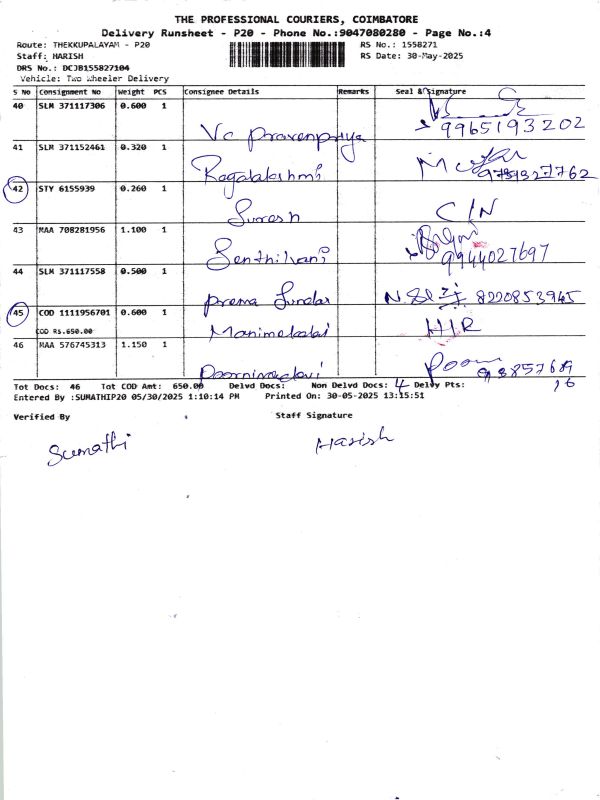 THE PROFESSIONAL COURIERS, COIMBATORE
Delivery Runsheet - P20 - Phone No.:9047080280 - Page No.:4
Route: THEKKUPALAYAM - P20
RS No.: 1558271
Staff: HARISH
RS Date: 30-May-2025
DRS No.: DCJB155827104
Vehicle: Two Wheeler Delivery
S No Consignment No Weight PCS Consignee Details Remarks Seal & Signature
40 SLM 371117306 0.600 1
Vc pravenpriya 9965193202
41 SLM 371152461 0.320 1
Ragalakshmi
42 STY 6155939 0.260 1
Suresh C/N
43 MAA 708281956 1.100 1
Senthilvani 9944027697
44 SLM 371117558 0.500 1
prema Sundar 8220853945
45 COD 1111956701 0.600 1
COD Rs.650.00 Manimekalai H/R
46 MAA 576745313 1.150 1
Poornimadevi Poorni
Tot Docs: 46 Tot COD Amt: 650.00 Delvd Docs: Non Delvd Docs: 4 Delvy Pts:
Entered By :SUMATHIP20 05/30/2025 1:10:14 PM Printed On: 30-05-2025 13:15:51
Verified By Staff Signature
Sumathi Harish